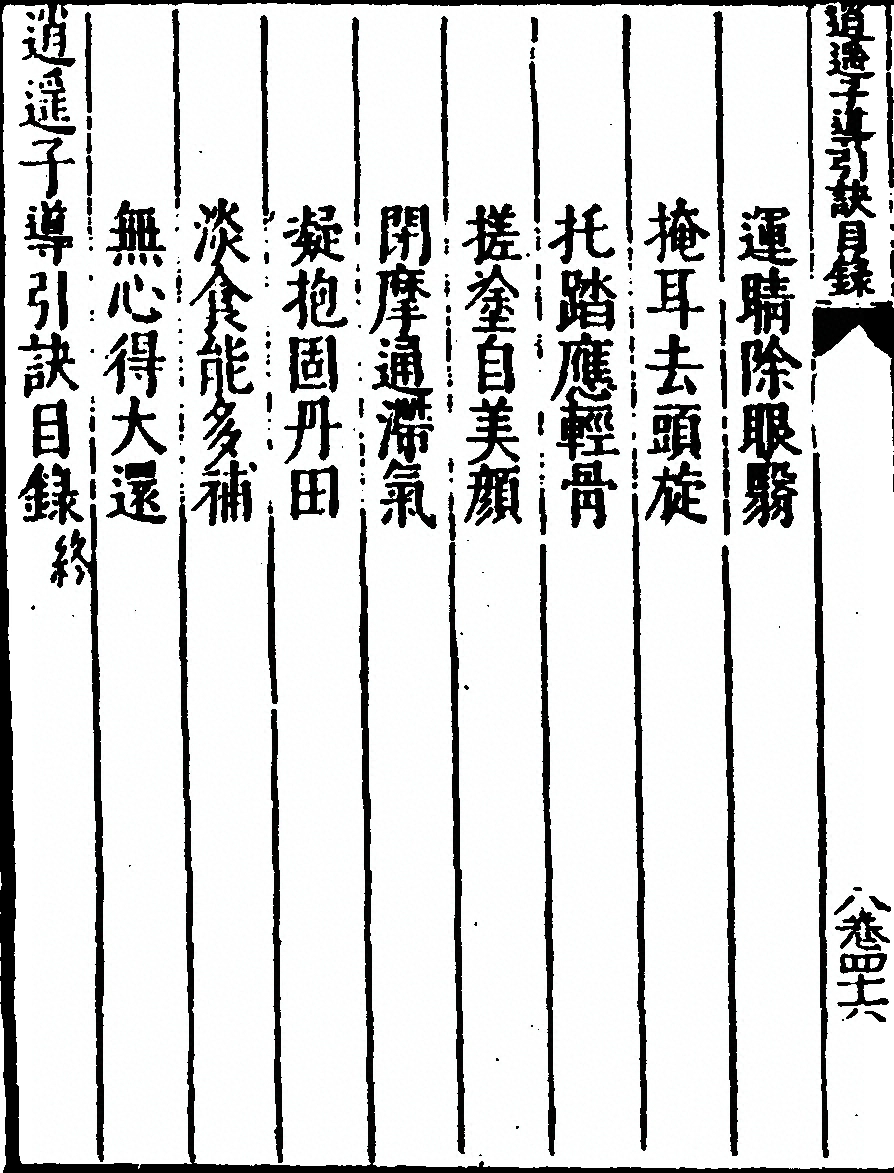 逍遥子導引訣目錄
八卷 四十六
運睛除眼翳
掩耳去頭旋
托踏應輕骨
搓塗自美顏
閉摩通滯氣
凝抱固丹田
淡食能多補
無心得大還
逍遥子導引訣目錄終